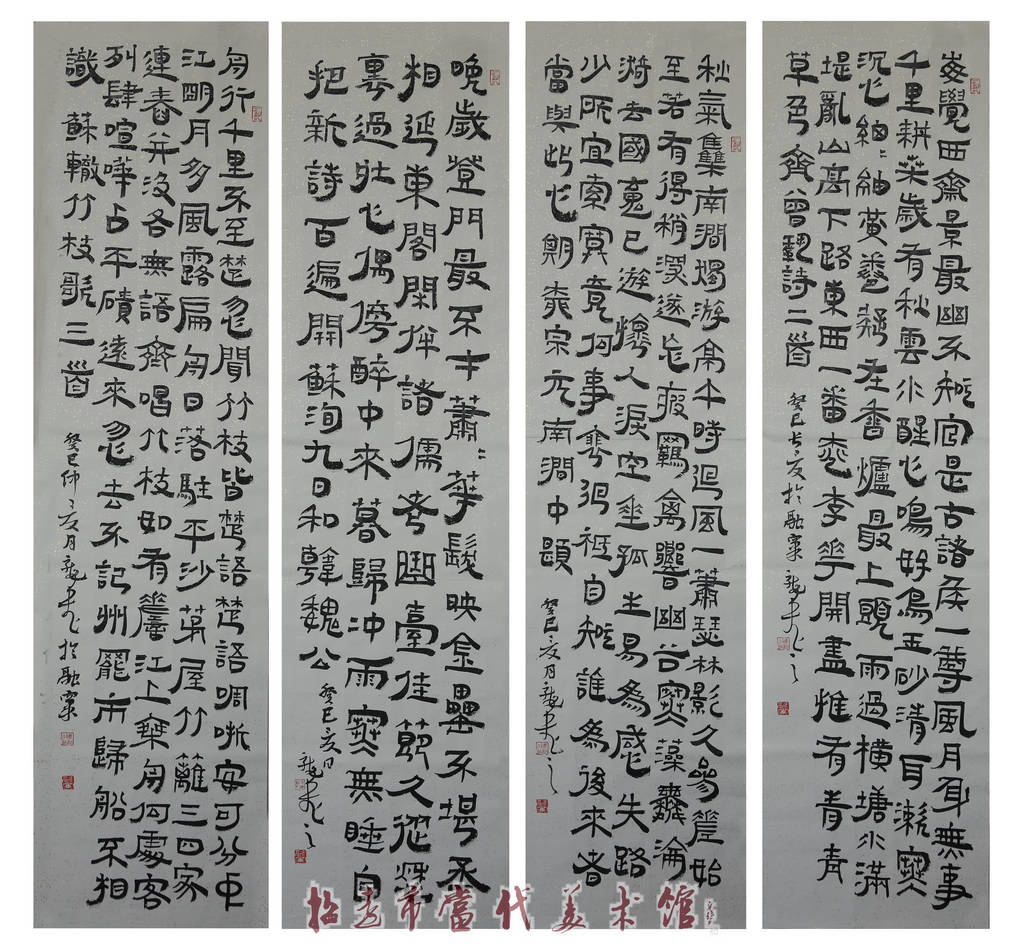 每覺西齋景最幽不知官是古諸侯一尊風月身無事
千里耕桑歲有秋雲水醒心鳴好鳥玉砂清耳漱寒
黃卷疑在香爐最上頭雨過橫塘水滿
堤亂山高下路東西一番桃李花開盡惟有青青
草色齊曾鞏詩二首
秋氣集南澗獨游亭午時迴風一蕭瑟林影久參差始
至若有得稍深遂忘疲羈禽響幽谷寒藻舞淪
漪去國魂已遊懷人淚空垂孤生易為感失路
少所宜索寞竟何事徘徊衹自知誰為後來者
當與此心期柳宗元南澗中題
癸巳夏月
晚歲登門最不才蕭〻華髮映金罍不堪丞
相延東閣閒伴諸儒老曲臺佳節久從愁
裏過壯心偶傍醉中來暮歸沖雨寒無睡自
把新詩百遍開蘇洵九日和韓魏公
癸巳夏月
舟行千里不至楚忽聞竹枝皆楚語楚語啁哳安可分中
江明月多風露扁舟日落駐平沙茅屋竹籬三四家
連舂并汲各無語齊唱竹枝如有嗟江上乘舟何處客
列肆喧嘩占平磧遠來忽去不記州罷市歸船不相
識蘇轍竹枝歌三首
癸巳仲夏月
招远市當代美术馆